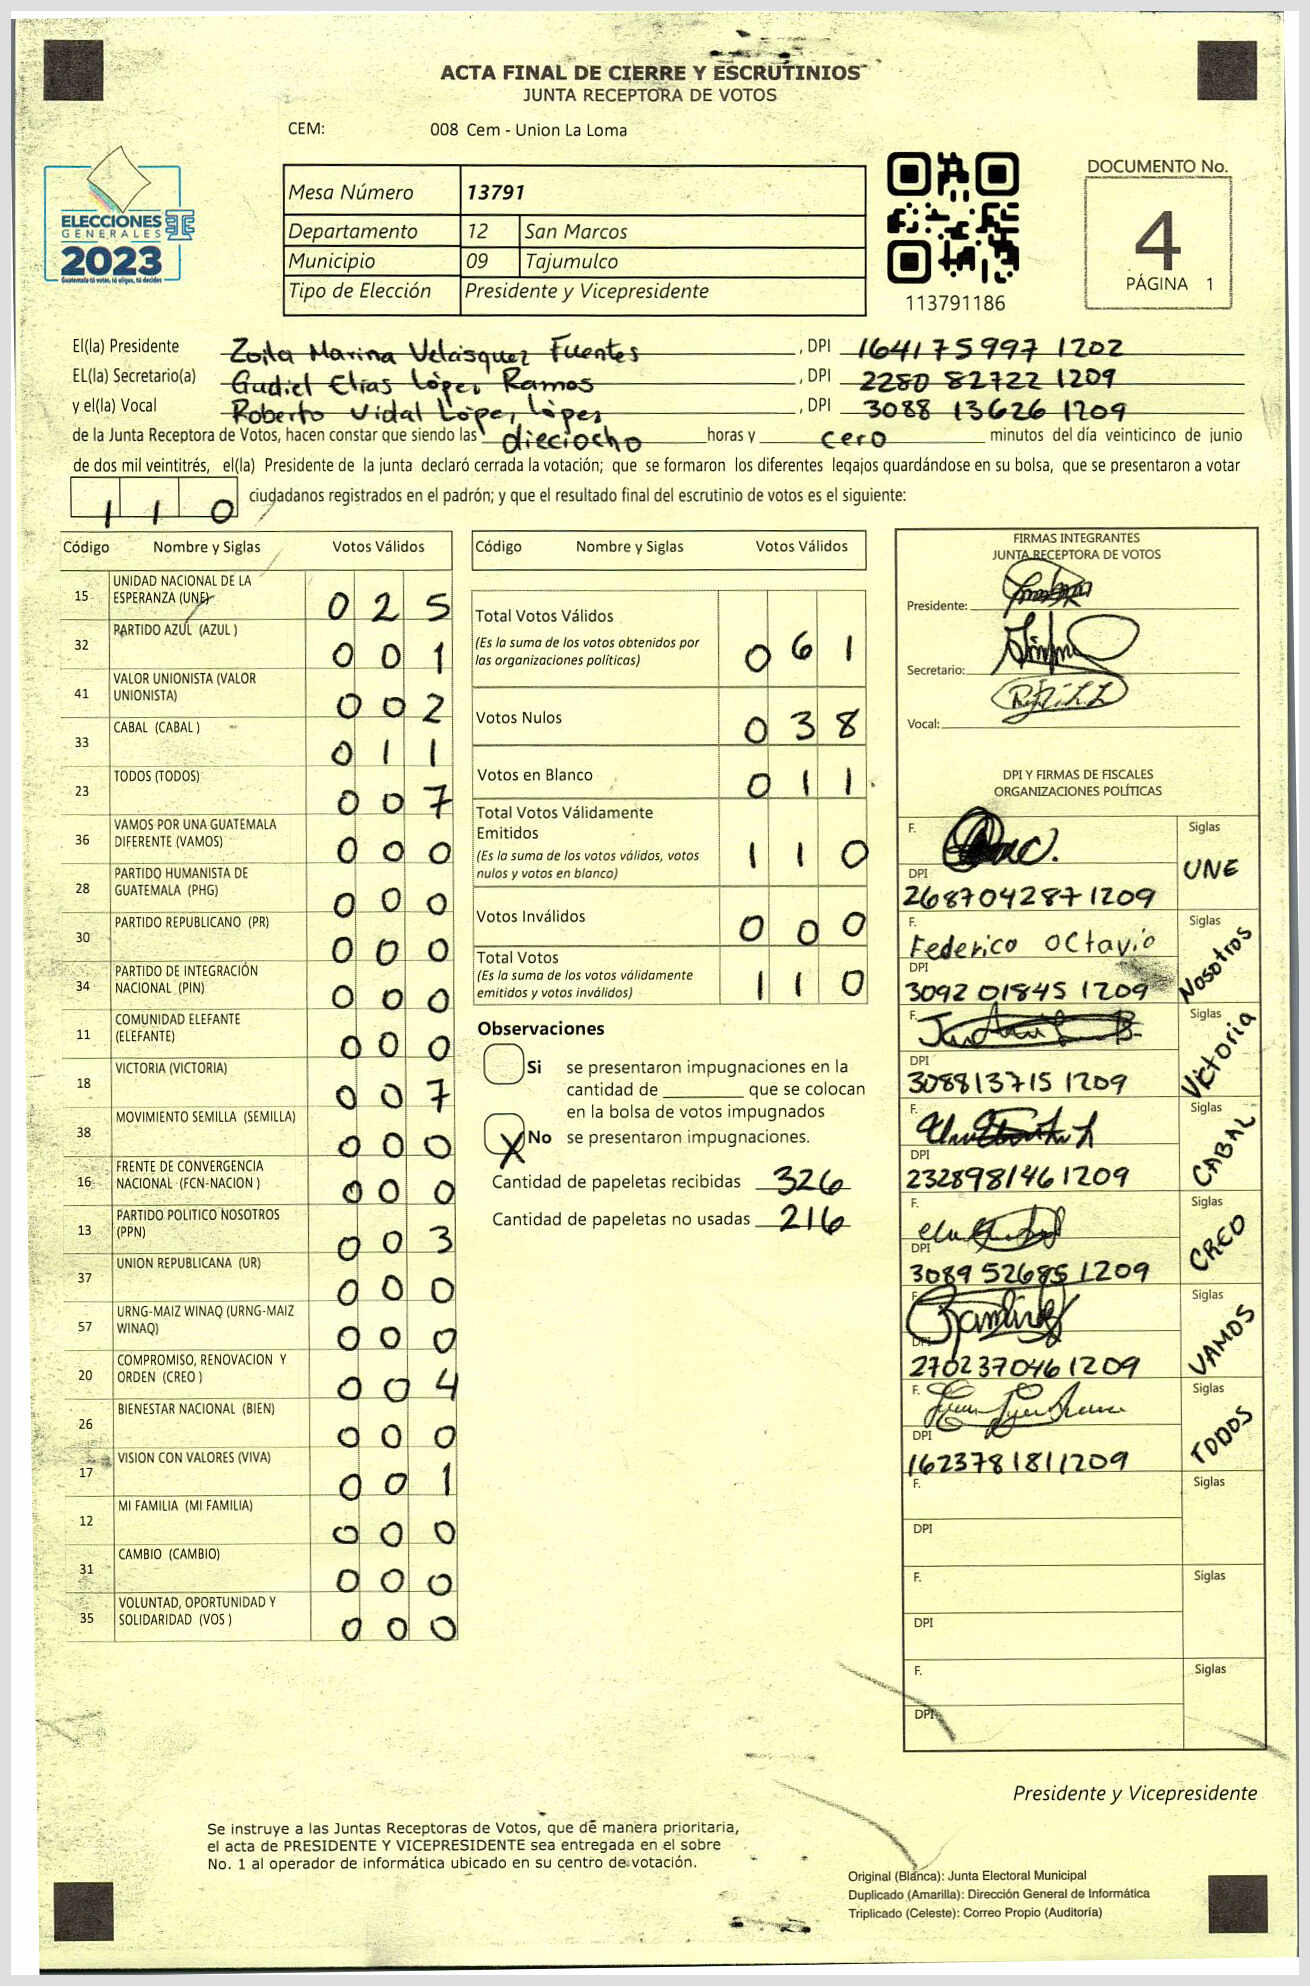 ACTA FINAL DE CIERRE Y ESCRUTINIOS
JUNTA RECEPTORA DE VOTOS
CEM: 008 Cem - Union La Loma
ELECCIONES
GENERALES
2023
Guatemala tú votas, tú eliges, tú decides
TSE
Mesa Número 13791
Departamento 12 San Marcos
Municipio 09 Tajumulco
Tipo de Elección Presidente y Vicepresidente
113791186
DOCUMENTO No.
4
PÁGINA 1
El(la) Presidente Zoila Marina Velásquez Fuentes, DPI 164175997 1202
EL(la) Secretario(a) Gudiel Elías López Ramos, DPI 2280 82722 1209
y el(la) Vocal Roberto Vidal López López, DPI 3088 13626 1209
de la Junta Receptora de Votos, hacen constar que siendo las dieciocho horas y cero minutos del día veinticinco de junio
de dos mil veintitrés, el(la) Presidente de la junta declaró cerrada la votación; que se formaron los diferentes legajos guardándose en su bolsa, que se presentaron a votar
110 ciudadanos registrados en el padrón; y que el resultado final del escrutinio de votos es el siguiente:
Código Nombre y Siglas Votos Válidos
15 UNIDAD NACIONAL DE LA
ESPERANZA (UNE) 025
32 PARTIDO AZUL (AZUL ) 001
41 VALOR UNIONISTA (VALOR
UNIONISTA) 002
33 CABAL (CABAL ) 011
23 TODOS (TODOS) 007
36 VAMOS POR UNA GUATEMALA
DIFERENTE (VAMOS) 000
28 PARTIDO HUMANISTA DE
GUATEMALA (PHG) 000
30 PARTIDO REPUBLICANO (PR) 000
34 PARTIDO DE INTEGRACIÓN
NACIONAL (PIN) 000
11 COMUNIDAD ELEFANTE
(ELEFANTE) 000
18 VICTORIA (VICTORIA) 007
38 MOVIMIENTO SEMILLA (SEMILLA) 000
16 FRENTE DE CONVERGENCIA
NACIONAL (FCN-NACION ) 000
13 PARTIDO POLITICO NOSOTROS
(PPN) 003
37 UNION REPUBLICANA (UR) 000
57 URNG-MAIZ WINAQ (URNG-MAIZ
WINAQ) 000
20 COMPROMISO, RENOVACION Y
ORDEN (CREO ) 004
26 BIENESTAR NACIONAL (BIEN) 000
17 VISION CON VALORES (VIVA) 001
12 MI FAMILIA (MI FAMILIA) 000
31 CAMBIO (CAMBIO) 000
35 VOLUNTAD, OPORTUNIDAD Y
SOLIDARIDAD (VOS ) 000
Código Nombre y Siglas Votos Válidos
Total Votos Válidos
(Es la suma de los votos obtenidos por
las organizaciones políticas) 061
Votos Nulos 038
Votos en Blanco 011
Total Votos Válidamente
Emitidos
(Es la suma de los votos válidos, votos
nulos y votos en blanco) 110
Votos Inválidos 000
Total Votos
(Es la suma de los votos válidamente
emitidos y votos inválidos) 110
Observaciones
Si se presentaron impugnaciones en la
cantidad de ________ que se colocan
en la bolsa de votos impugnados
X No se presentaron impugnaciones.
Cantidad de papeletas recibidas 326
Cantidad de papeletas no usadas 216
FIRMAS INTEGRANTES
JUNTA RECEPTORA DE VOTOS
Presidente:
Secretario:
Vocal:
DPI Y FIRMAS DE FISCALES
ORGANIZACIONES POLÍTICAS
F. Siglas UNE
DPI
2687042871209
F. Federico Octavio Siglas Nosotros
DPI
3092 01845 1209
F. Siglas Victoria
DPI
308813715 1209
F. Siglas CABAL
DPI
2328981461209
F. Siglas CREO
DPI
3089 52685 1209
F. Ramírez Siglas VAMOS
DPI
2702370461209
F. Siglas TODOS
DPI
1623781811209
F. Siglas
DPI
F. Siglas
DPI
F. Siglas
DPI
Presidente y Vicepresidente
Se instruye a las Juntas Receptoras de Votos, que de manera prioritaria,
el acta de PRESIDENTE Y VICEPRESIDENTE sea entregada en el sobre
No. 1 al operador de informática ubicado en su centro de votación.
Original (Blanca): Junta Electoral Municipal
Duplicado (Amarilla): Dirección General de Informática
Triplicado (Celeste): Correo Propio (Auditoría)